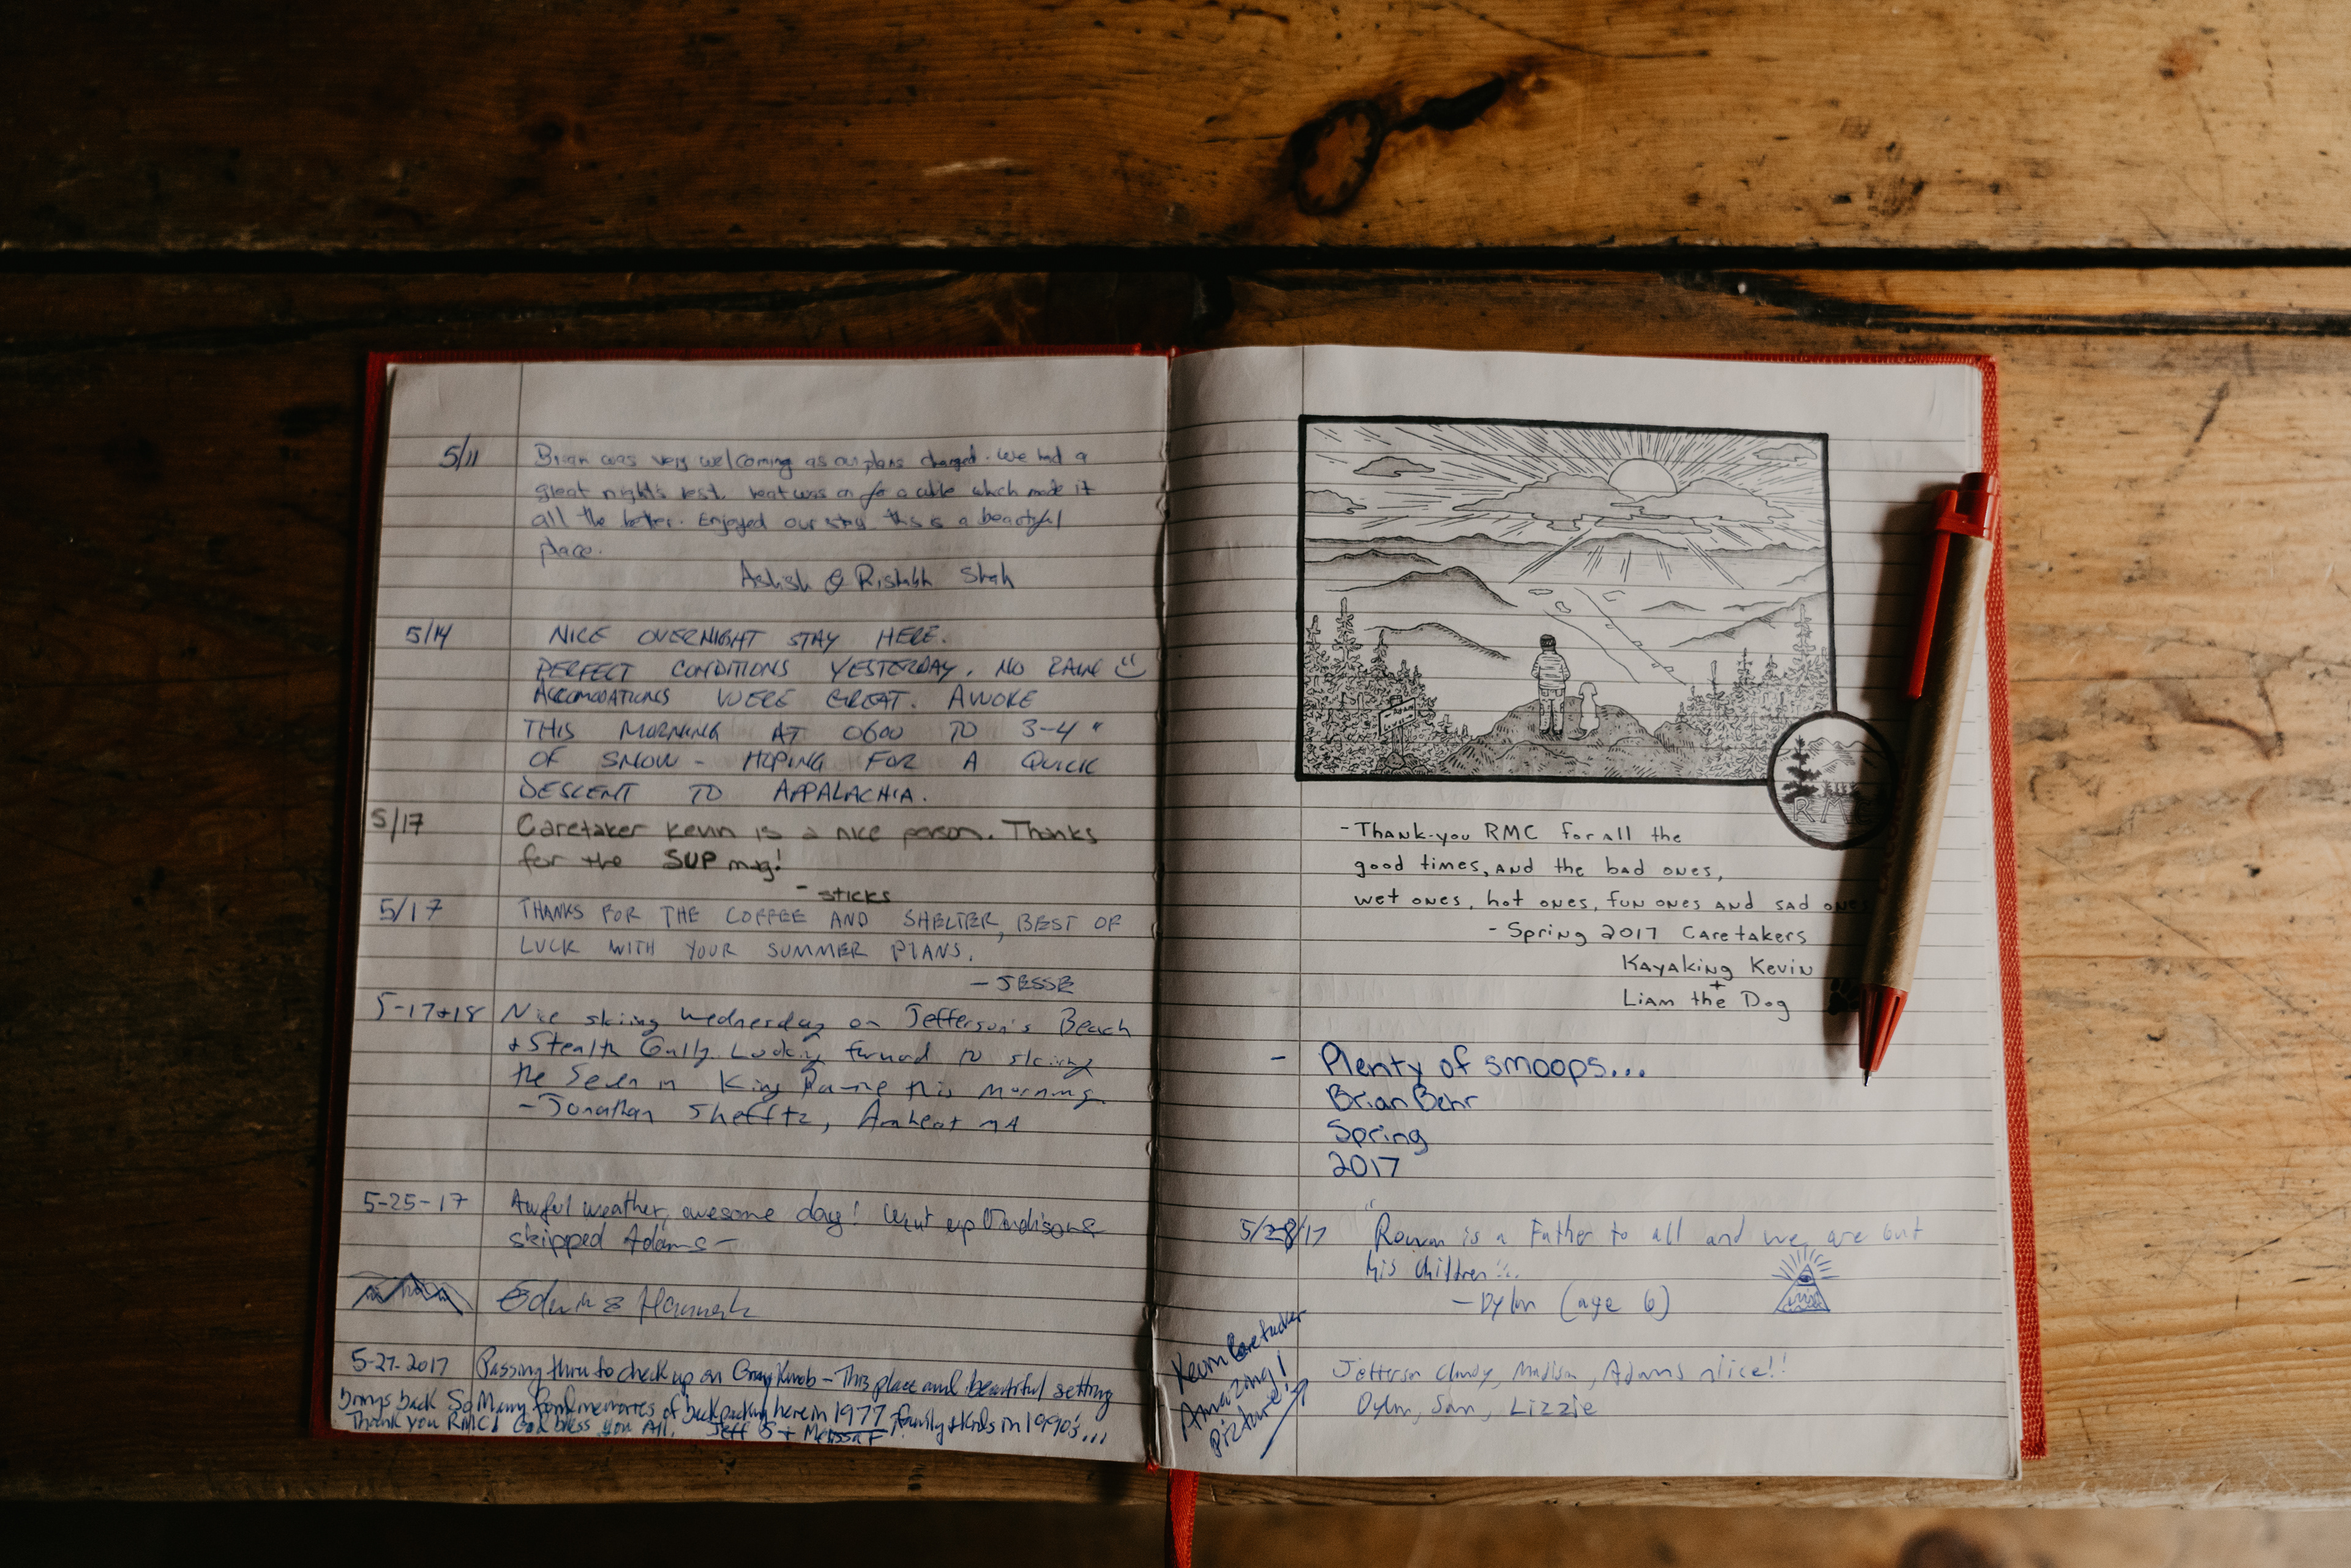 5/11 Brian was very welcoming as our plans changed. We had a
great night's rest. heat was on for a while which made it
all the better. Enjoyed our stay. this is a beautiful
place.
Ashish & Rishabh Shah
5/14 NICE OVERNIGHT STAY HERE.
PERFECT CONDITIONS YESTERDAY. NO RAIN
ACCOMODATIONS WERE GREAT. AWOKE
THIS MORNING AT 0600 TO 3-4"
OF SNOW - HOPING FOR A QUICK
DESCENT TO APPALACHIA.
5/17 Caretaker Kevin is a nice person. Thanks
for the SUP mug!
- sticks
5/17 THANKS FOR THE COFFEE AND SHELTER, BEST OF
LUCK WITH YOUR SUMMER PLANS.
- JESSE
5-17+18 Nice skiing Wednesday on Jefferson's Beach
+ Stealth Gully. Looking forward to skiing
the Seven in King Ravine this morning.
- Jonathan Shefftz, Amherst MA
5-25-17 Awful weather, awesome day! Went up Madison &
skipped Adams -
Edwin & Hannah
5-27-2017 Passing thru to check up on Gray Knob - This place and beautiful setting
brings back So Many fond memories of backpacking here in 1977, family + kids in 1990's...
Thank you RMC! God bless you All. Jeff S + Melissa F
RMC
- Thank-you RMC for all the
good times, and the bad ones,
wet ones, hot ones, fun ones and sad ones
- Spring 2017 Caretakers
Kayaking Kevin
+
Liam the Dog
- Plenty of smoops...
Brian Behr
Spring
2017
5/28/17 "Rowan is a Father to all and we are but
his children"
- Dylan (age 6)
Kevin Caretaker
Amazing!
picture!
Jefferson Clay, Madison, Adams nice!!
Dylan, Sam, Lizzie